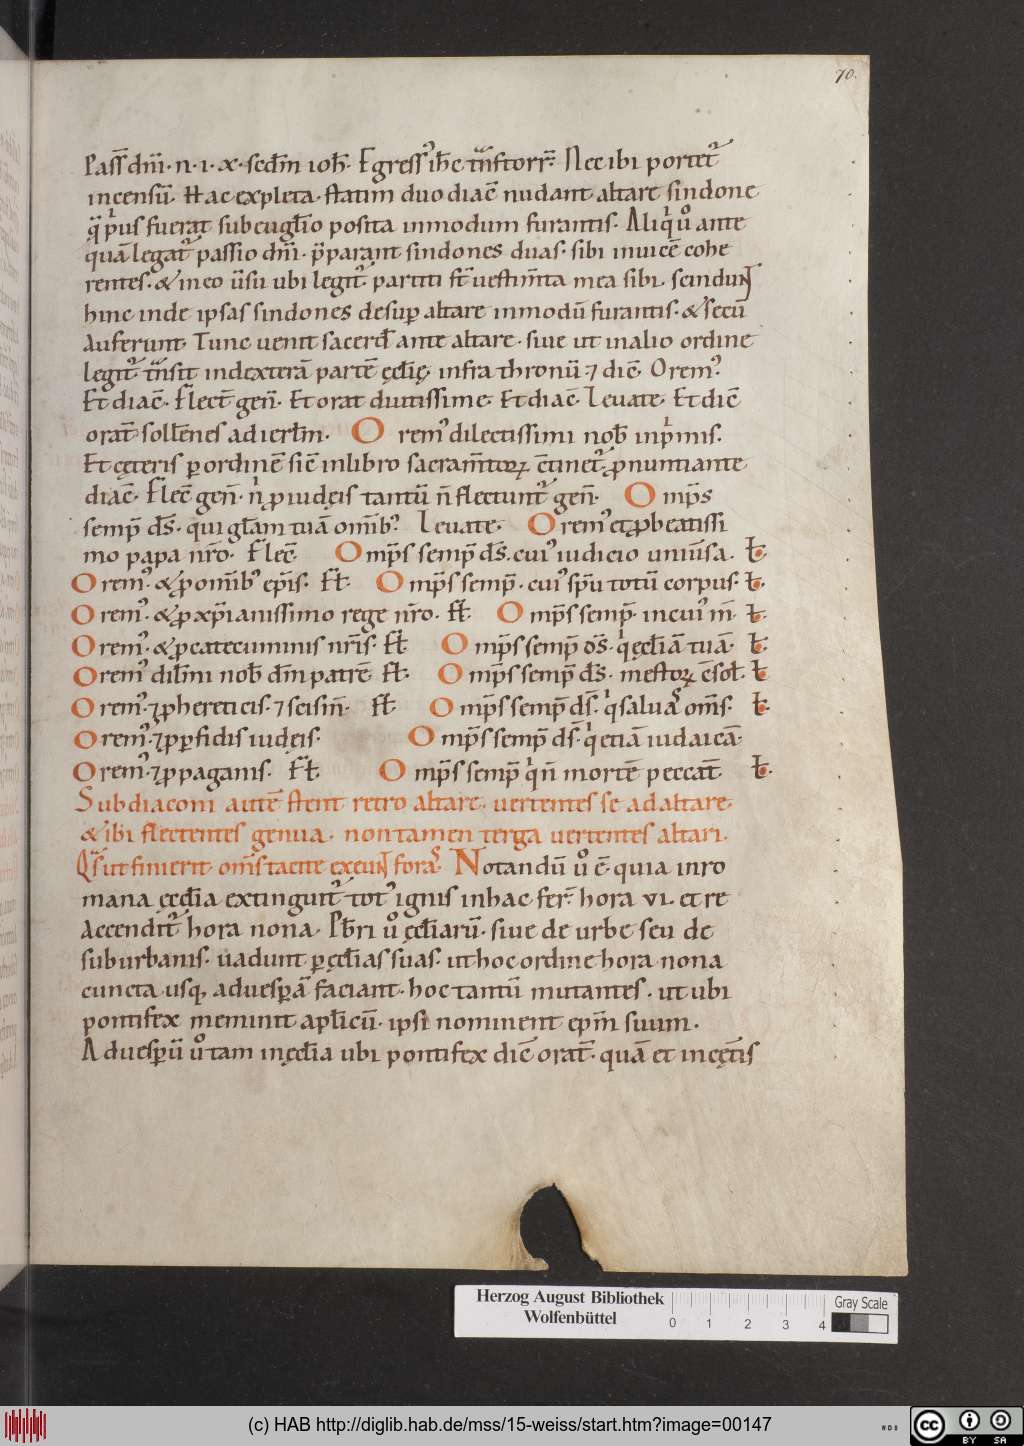 70.
Pass̄ dn̄i · n · i · x · sed̄m ioh̄ · Egress᾽ ih̄c tn̄storr̄ · Nec ibi portet᾽
incensū · Hac expleta · statim duo diac̄ nudant altare sindone
q̄ p᾽us fuerat sub euḡlio posita inmodum furantis · Aliq᾽ u᾽o ante
quā legat᾽ passio dn̄i · p̄parant sindones duas · sibi inuicē cohe
rentes · & in eo ūsu ubi legit᾽ · partiti s̄t uestim̄ta mea sibi · scindunt
hinc inde ipsas sindones desup altare inmodū furantis · & secū
auferunt · Tunc uenit sacerd̄ ante altare · siue ut in alio ordine
legit᾽ tn̄sit indexterā partē ęcl̄ię · infra thronū ⁊ dic̄ · Orem᾽
Et diac̄ · Flect̄ gen̄ · Et orat diutissime · Et diac̄ · Leuate · Et dic̄
orat̄ soll̄enes ad ierl̄m · Orem᾽ dilectissimi nob̄ inp᾽mis ·
Et cęteris p ordinē sic̄ in libro sacram̄toꝝ c̄tinet᾽ · pnuntiante
diac̄ · Flec̄ gen̄ · n᾽ p iudęis tantū n̄ flectunt᾽ gen̄ · Omp̄s
semp̄ ds̄ · qui gl̄am tuā om̄ib᾽ · Leuate · Orem᾽ et p beatissi
mo papa nr̄o · Flec̄ Omp̄s semp̄ ds̄ · cui᾽ iudicio uniūsa · Ł ·
Orem᾽ · & p om̄ib᾽ ep̄is · FŁ · Omp̄s semp̄ · cui᾽ sp̄u totū corpus · Ł ·
Orem᾽ · & p xp̄ianissimo rege nr̄o · FŁ · Omp̄s semp̄ in cui᾽ m̄ · Ł ·
Orem᾽ · & p catecuminis nr̄is · FŁ Omp̄s semp̄ ds̄ · q᾽ ęcl̄iā tuā · Ł ·
Orem᾽ dil̄mi nob̄ dm̄ patrē · FŁ · Omp̄s semp̄ ds̄ · mestoꝝ c̄sol̄ · Ł
Orem᾽ · ⁊ p hereticis · ⁊ scism̄ · FŁ · Omp̄s semp̄ ds̄ · q᾽ saluas om̄s · Ł ·
Orem᾽ · ⁊ p pfidis iudęis · Omp̄s semp̄ ds̄ · q᾽ etiā iudaicā ·
Orem᾽ · ⁊ p paganis · FŁ · Omp̄s semp̄ q᾽ n̄ mortē peccat̄ · Ł ·
Subdiaconi autē stent retro altare · uertentes se ad altare ·
& ibi flectentes genua · non tamen terga uertentes altari ·
Q᾽ s᾽ ut finierit om̄s tacite exeunt foras · Notandū u᾽o ē · quia in ro
mana ęccl̄ia extinguit᾽ tot᾽ ignis in hac fer̄ · hora VI · et re
accendit᾽ hora nona · Pb̄ri u᾽o ęcl̄iarū · siue de urbe seu de
suburbanis · uadunt p ęcl̄ias suas · ut hoc ordine hora nona
cuncta usq; ad uespā faciant · hoc tantū mutantes · ut ubi
pontifex meminit apl̄icū · ipsi nominent ep̄m suum ·
Ad uespū u᾽o tam in ęcl̄ia ubi pontifex dic̄ orat̄ · quā et in cęt̄is
Herzog August Bibliothek
Wolfenbüttel
0 1 2 3 4
Gray Scale
(c) HAB http://diglib.hab.de/mss/15-weiss/start.htm?image=00147
cc BY SA